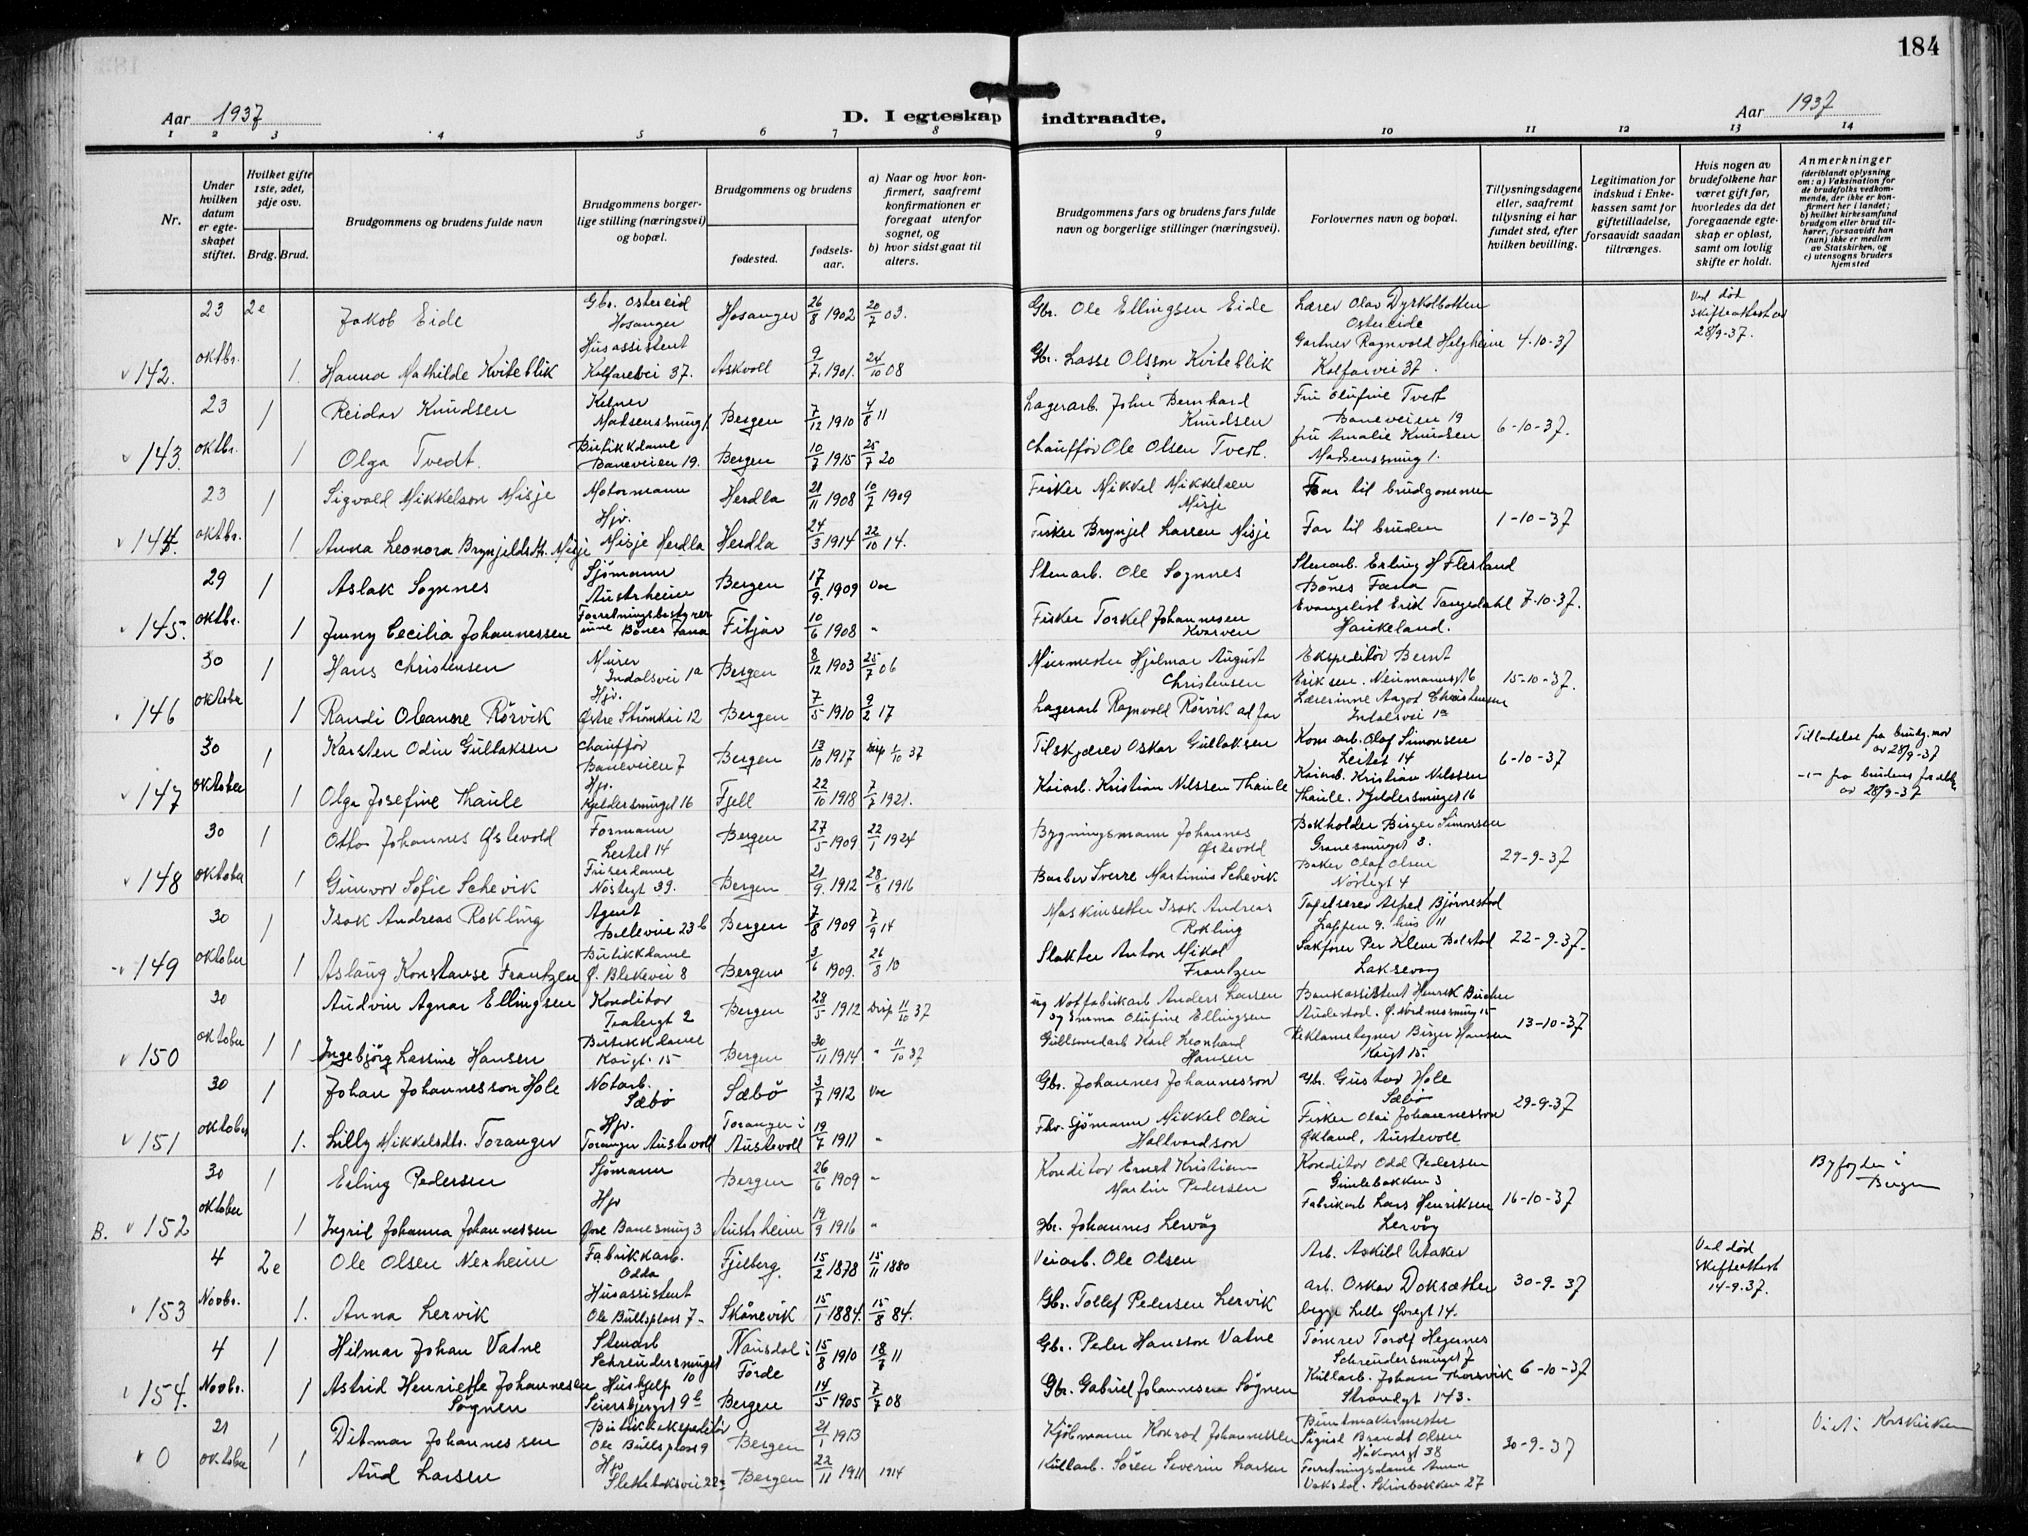 184
Aar 1937
D. I egteskap indtraadte.
Aar 1937
1 2 3 4 5 6 7 8 9 10 11 12 13 14
Nr.
Under hvilken datum er egteskapet stiftet.
Hvilket gifte 1ste, 2det, 3dje osv.
Brdg. Brud.
Brudgommens og brudens fulde navn
Brudgommens borgerlige stilling (næringsvei) og bopæl.
Brudgommens og brudens
fødested.
fødselsaar.
a) Naar og hvor konfirmert, saafremt konfirmationen er foregaat utenfor sognet, og
b) hvor sidst gaat til alters.
Brudgommens fars og brudens fars fulde navn og borgerlige stillinger (næringsvei).
Forlovernes navn og bopæl.
Tillysningsdagene eller, saafremt tillysning ei har fundet sted, efter hvilken bevilling.
Legitimation for indskud i Enkekassen samt for giftetilladelse, forsaavidt saadan tiltrænges.
Hvis nogen av brudefolkene har været gift før, hvorledes da det foregaaende egteskap er opløst, samt om lovlig skifte er holdt.
Anmerkninger
(deriblandt oplysning om: a) Vaksination for de brudefolks vedkommende, der ikke er konfirmert her i landet;
b) hvilket kirkesamfund brudgom eller brud tilhører, forsaavidt han (hun) ikke er medlem av Statskirken, og
c) utensogns bruders hjemsted
23 2e Jakob Eide Gbr. Ostereid Hosanger Hosanger 26/8 1902 20/7 03. Gbr. Ole Ellingsen Eide Lærer Olav Dyrkolbotten Ostereide Ved død skifteattest av 28/9-37.
142. oktbr. 1. Hanna Mathilde Kviteblik Husassistent Kalfarvei 37. Askvoll 9/7 1901. 24/10 08 Gbr. Lasse Olsson Kviteblik Gartner Ragnvald Helgheim Kalfarvei 37. 4-10-37
23 1 Reidar Knudsen Kelner Madsenssmug 1. Bergen 7/12 1910 4/8 11 Lagerarb. John Bernhard Knudsen Fru Olufine Tvedt Baneveien 19
143. oktbr. 1 Olga Tvedt. Butikkdame Baneveien 19. Bergen 10/7 1915 25/7 20 Chauffør Ole Olsen Tvedt. fru Amalie Knudsen Madsenssmug 1. 6-10-37.
23 1 Sigvald Mikkelson Misje Motormann Herdla 21/11 1908 10/7 1909 Fisker Mikkel Mikkelsen Misje Far til brudgommen
144. oktbr. 1 Anna Leonora Brynjeldsdtr. Misje Hjv. Misje Herdla Herdla 24/3 1914 22/10 14. Fisker Brynjel Larsen Misje Far til bruden 1-10-37
29 1 Aslak Sognnes Sjømann Austrheim Bergen 17/9. 1909 Vac Stenarb. Ole Sognnes Stenarb. Erling H Flesland Bønes Fana
145. oktbr. 1 Jenny Cecilia Johannessen Forretningsbestyrerinne Bønes Fana Fitjar 10/6 1908 " Fisker Torkel Johannesen Kvarven Evangelist Erik Tangedahl Haukeland. 7-10-37.
30 1 Hans Christensen Murer Indalsvei 1a Bergen 8/12 1903 25/7 06 Murmester Hjalmar August Christensen Ekspeditør Bernt Eriksen. Neumannsgt 6
146 oktober 1 Randi Oleanne Rörvik Hjv. Østre Strømkai 12 Bergen 7/5 1910 9/2 17 Lagerarb Ragnvald Rörvik ad far Lærerinne Aagot Christensen Indalsvei 1a 15-10-37.
30 1 Karsten Odin Gullaksen Chauffør Baneveien 7 Bergen 13/10 1917 Disp 1/10 37 Tilskjærer Oskar Gullaksen Kom arb. Olaf Simonsen Leitet 14 Tilladelse fra brudg. mor av 28/9-37
147 oktober 1 Olga Josefine Thaule Hjv. Kjeldersmuget 16 Fjell 22/10 1918 7/7 1921. Kaiarb. Kristian Nilssen Thaule Kaiarb. Kristian Nilssen Thaule. Kjeldersmuget 16 6-10-37 -"- fra brudens foreldre av 28/9-37
30 1 Otto Johannes Østevold Formann Leitet 14 Bergen 27/5 1909 22/1 1924 Bygningsmann Johannes Østevold Bokholder Birger Simonsen Granesmuget 3.
148 oktober 1 Gunvor Sofie Schevik Friserdame Nøstegt 39. Bergen 21/9. 1912 28/8 1916 Barber Sverre Martinus Schevik Baker Olaf Olsen Nøstegt 4 29-9-37
30 1 Isak Andreas Rokling Agent Bellevue 23b Bergen 7/8 1909 7/9 14 Maskinsetter Isak Andreas Rokling Tapetserer Alfred Bjørnestad Lappen 9. hus 11
149 oktober 1 Aslaug Konstanse Frantzen Butikkdame Ø. Blekevei 8 Bergen 3/6 1909. 26/8 10 Slakter Anton Mikal Frantzen Sakfører Per Klem Bolstad Laksevåg 22-9-37.
30 1 Audvin Agnar Ellingsen Konditor Bergen 28/5 1912 Disp 11/10 37 ug Notfabrikarb Anders Larsen og Emma Olufine Ellingsen Bankassistent Henrik Andestad. Ø. Nordnessmug 15
150 oktober 1 Ingebjørg Lassine Hansen Butikkdame Kaigt. 15 Bergen 30/11 1914 " 11/10 37 Gullsmedarb Karl Leonhard Hansen Reklametegner Birger Hansen Kaigt 15. 13-10-37
30 1 Johan Johannesson Hole Notarb. Sæbø Sæbø 3/7 1912 Vac Gbr. Johannes Johannesson Gbr. Gustav Hole Sæbø
151 oktober 1. Lilly Mikkelsdtr. Toranger Hjv. Toranger Austevoll Toranger i Austevoll 19/7 1911 " Fhv. Sjømann Mikkel Olai Hallvardson Fisker Olai Johannesson Økland, Austevoll 29-9-37
30 1 Erling Pedersen Sjømann Bergen 26/6 1909 " Konditor Ernst Kristian Martin Pedersen Konditor Odd Pedersen Gimlebakken 3 Byfogden i Bergen
B. 152 oktober 1 Ingrid Johanna Johannessen Hjv Øvre Banesmug 3 Austrheim 19/9 1916 " Gbr. Johannes Lervåg Fabrikarb Lars Henriksen Lervåg 16-10-37
4 2e Ole Olsen Nerheim Fabrikkarb. Odda Fjelberg 15/2 1878 15/11 1880 Veiarb. Ole Olsen Arb. Askild Utaker Ved død skifteattest 14-9-37.
153 Novbr. 1. Anna Lervik Husassistent Ole Bullsplass 7 Skånevik 15/1 1884. 15/8 84. Gbr. Tollef Pedersen Lervik arb. Oskar Doksæther begge Lille Øvregt 14. 30-9-37
4 1 Hilmar Johan Vatne Stenarb Schreudersmuget 10 Naustdal i Førde 15/8 1910 18/9 11 Gbr. Peder Hansson Vatne Tømrer Torolf Hegernes Schreudersmuget 7
154. Novbr. 1 Astrid Henriette Johannesen Søgnen Hushjelp Seiersbjergt 9b Bergen 14/5 1905 7/7 08 Gbr. Gabriel Johannesen Søgnen Kullarb. Johan Thorsvik Strandgt 143. 6-10-37
21 1 Ditmar Johannessen Butikkekspeditør Ole Bullsplass 9 Bergen 21/1 1913 Kjøbmann Konrad Johannessen Buntmakermester Sigurd Brandt Olsen Håkonsgt 38 Viet i Korskirken
0 oktober 1 Aud Larsen Hjv Slettebaksvei 22a Bergen 22/11 1911 1914 Kullarb. Søren Severin Larsen Forretningsdame Anna Vaksdal. Skivebakken 27 30-9-37